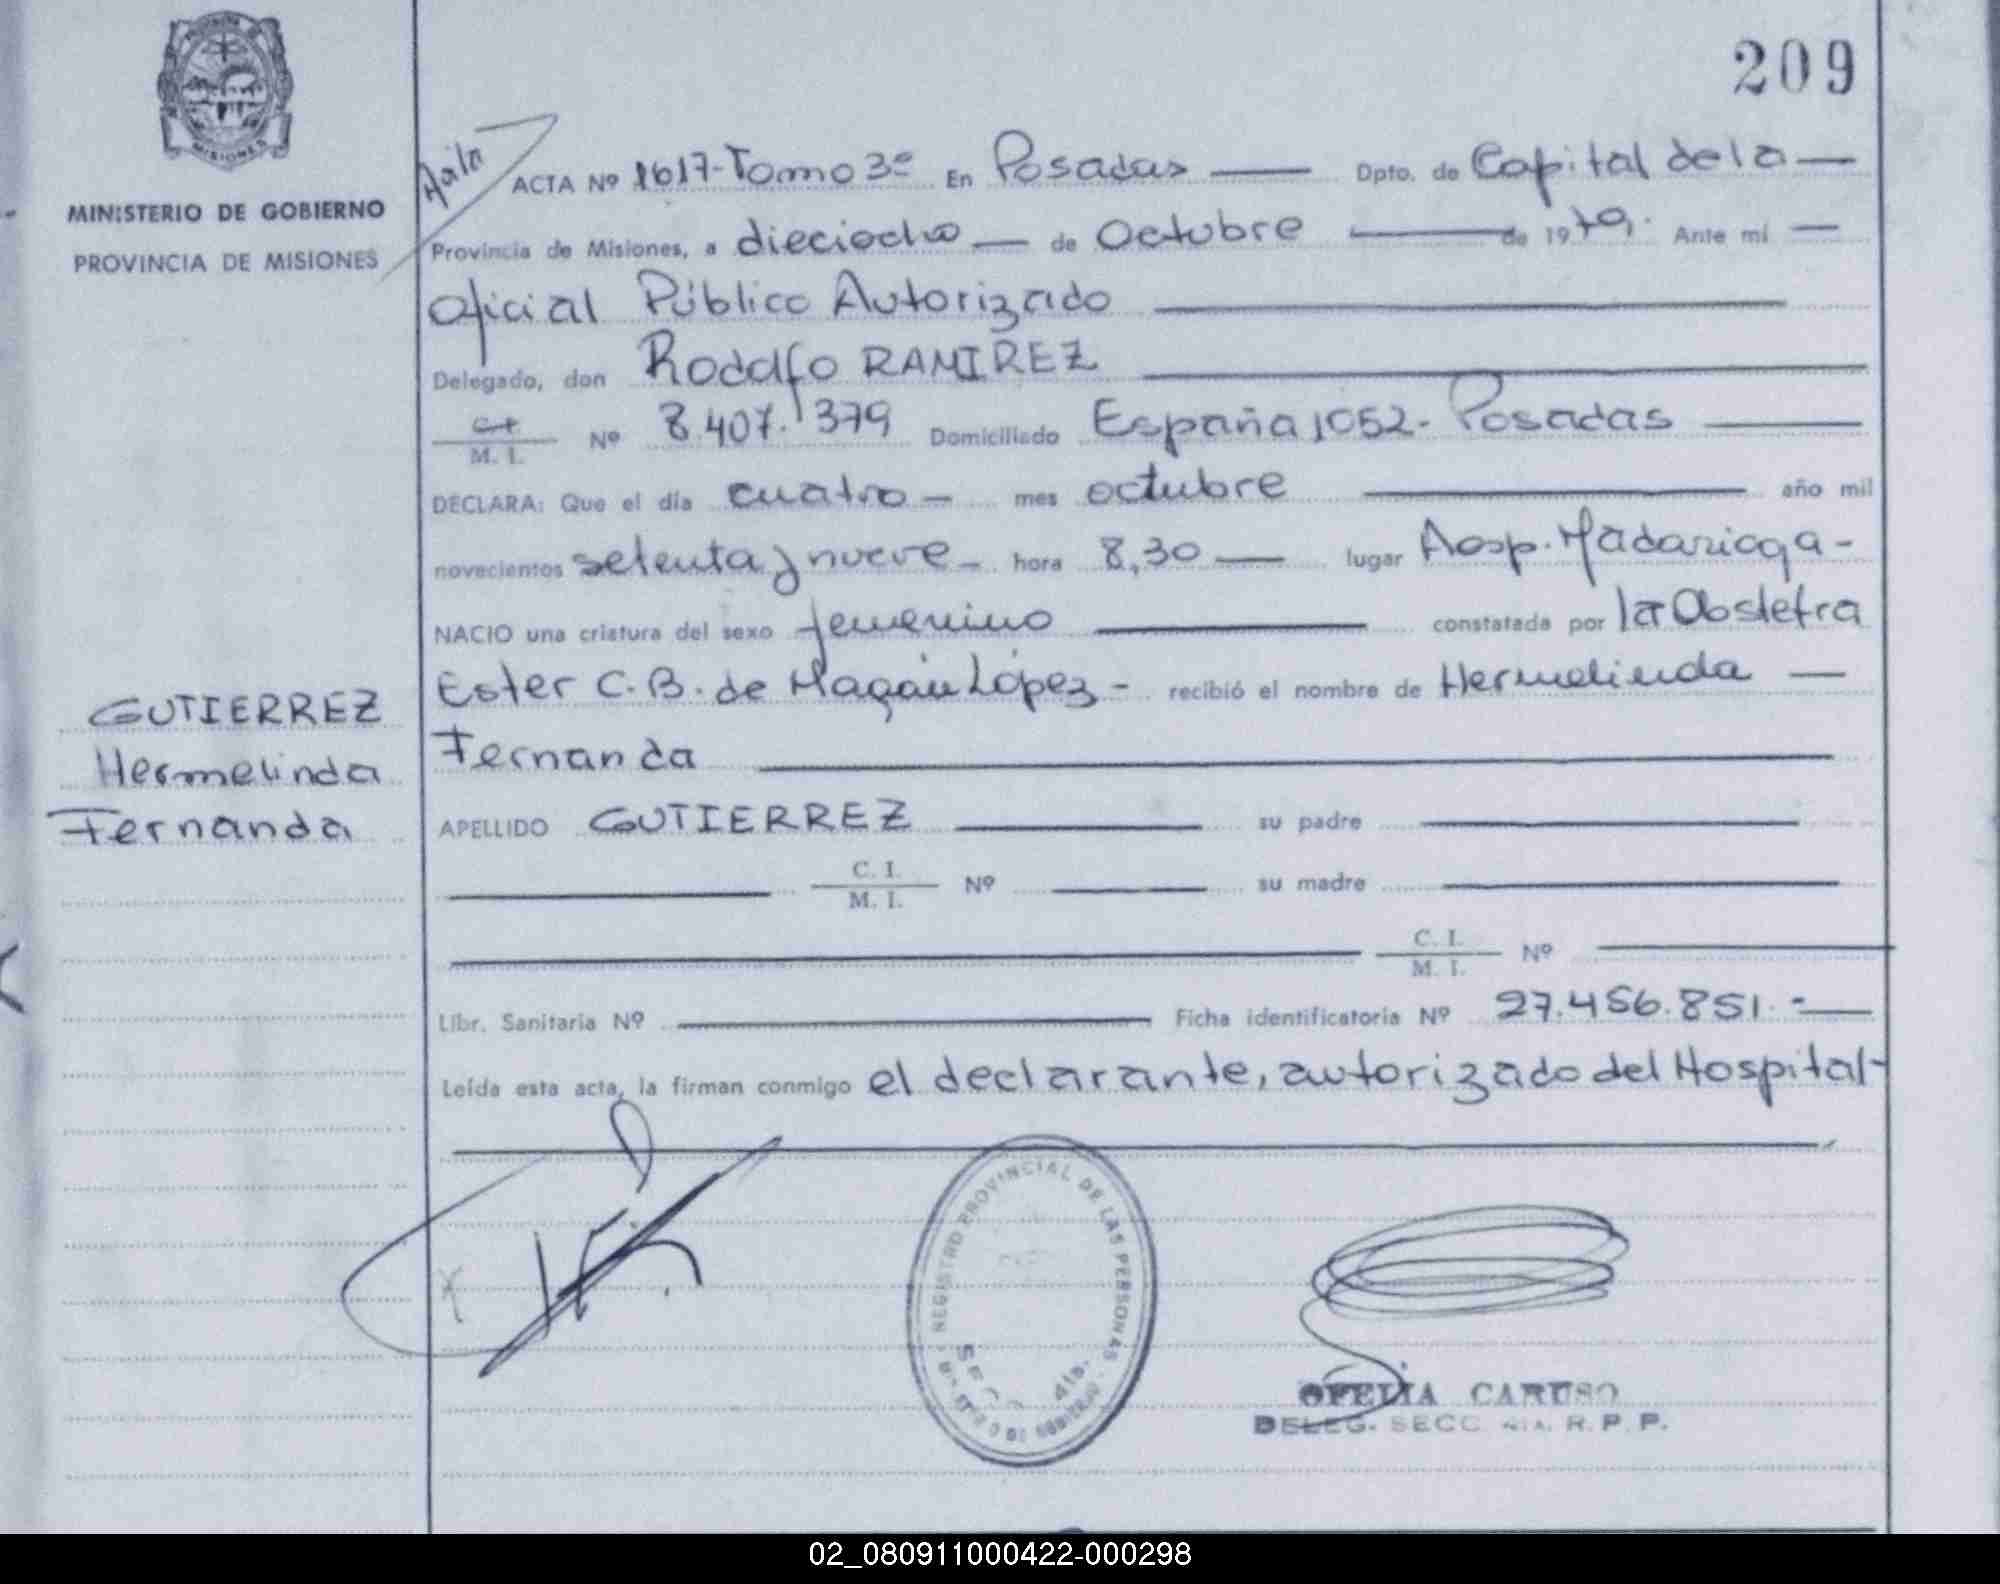 209
MISIONES
MINISTERIO DE GOBIERNO
PROVINCIA DE MISIONES
GUTIERREZ
Hermelinda
Fernanda
ACTA Nº 1617-Tomo 3º En Posadas — Dpto. de Capital de la —
Provincia de Misiones, a dieciocho — de Octubre — de 1979. Ante mí —
Oficial Público Autorizado —
Delegado, don Rodolfo RAMIREZ —
M. I. Nº 8.407.379 Domiciliado España 1052- Posadas —
DECLARA: Que el día cuatro — mes octubre — año mil
novecientos setenta y nueve - hora 8,30 — lugar Hosp. Madariaga -
NACIO una criatura del sexo femenino — constatada por la Obstetra
Ester C. B. de Magán López - recibió el nombre de Hermelinda —
Fernanda —
APELLIDO GUTIERREZ — su padre —
— C. I. / M. I. Nº — su madre —
— C. I. / M. I. Nº —
Libr. Sanitaria Nº — Ficha identificatoria Nº 27.456.851.-—
Leída esta acta, la firman conmigo el declarante, autorizado del Hospital-
REGISTRO PROVINCIAL DE LAS PERSONAS
OFELIA CARUSO
DELEG. SECC. 4ta. R. P. P.
02_080911000422-000298